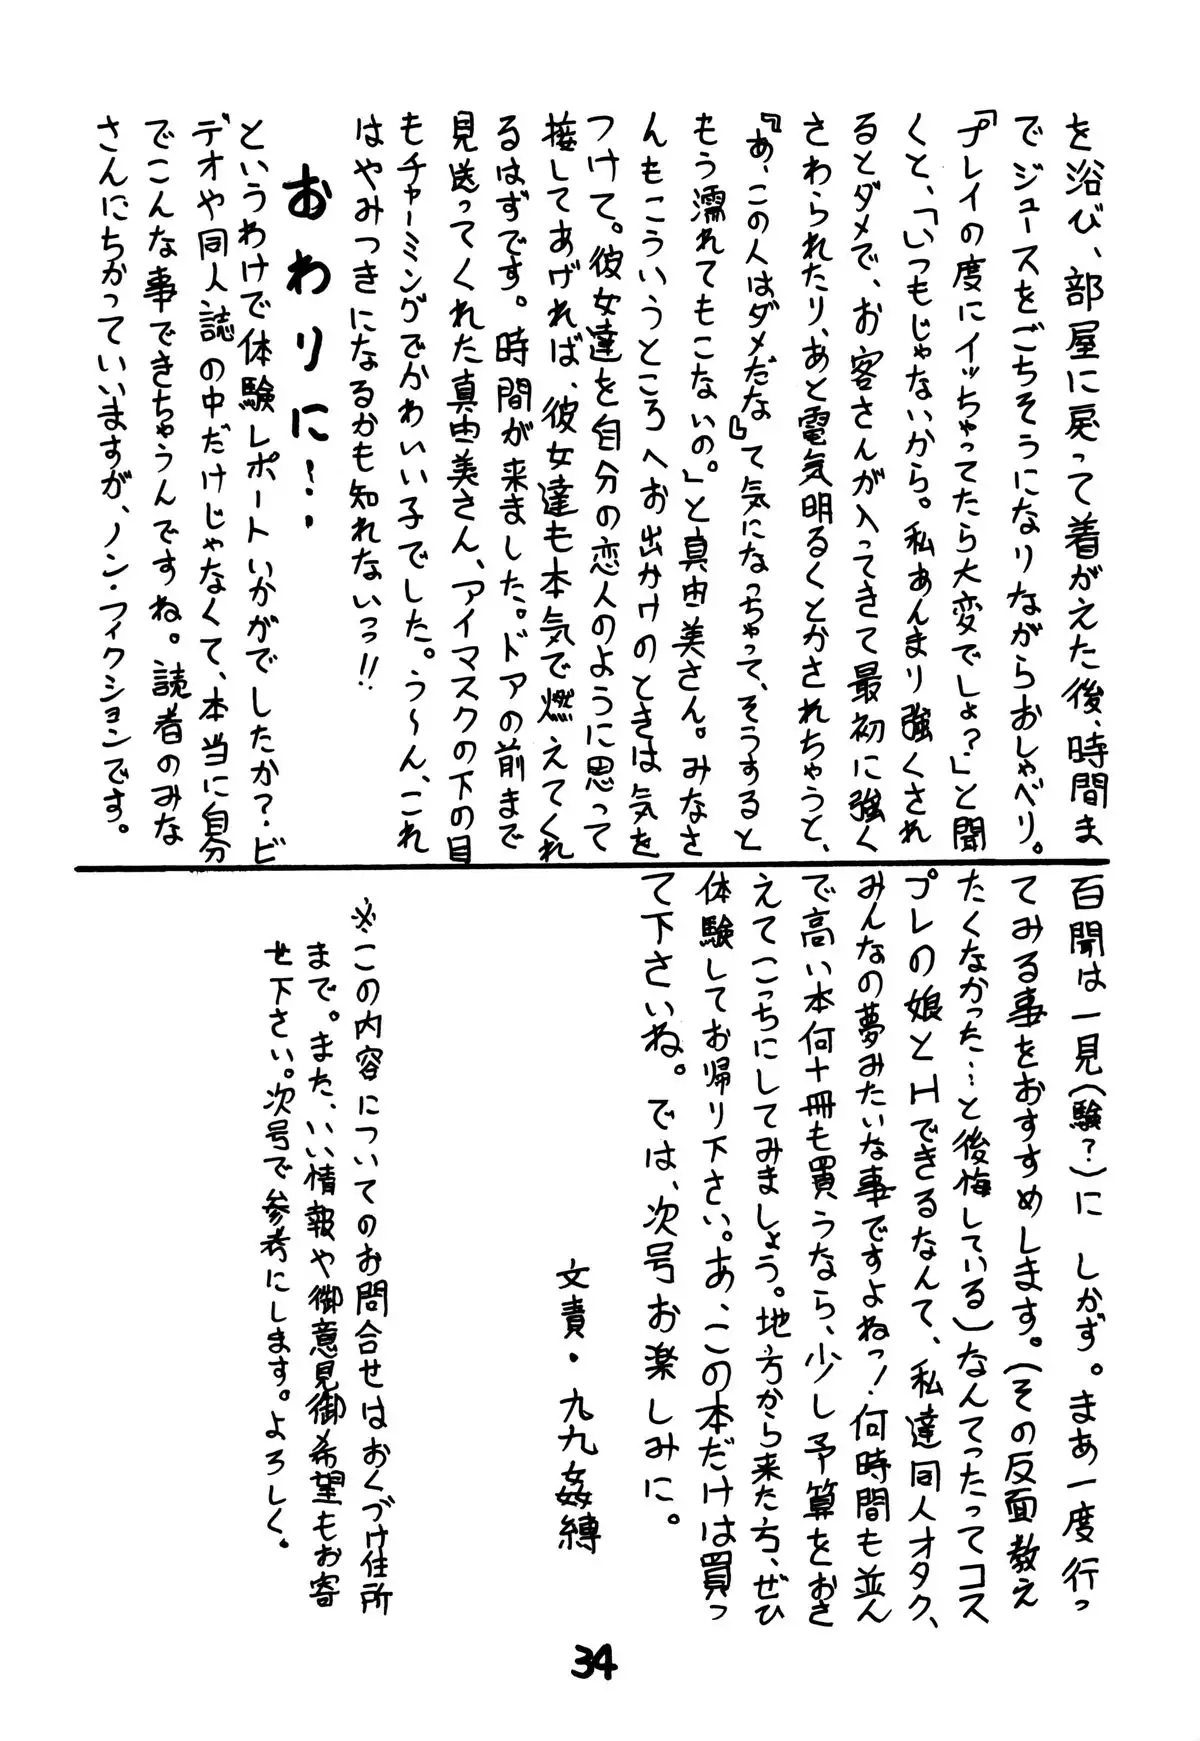 を浴び、部屋に戻って着がえた後、時間ま
でジュースをごちそうになりながらおしゃべり。
「プレイの度にイッちゃってたら大変でしょ？」と聞
くと、「いつもじゃないから。私あんまり強くされ
るとダメで、お客さんが入ってきて最初に強く
さわられたり、あと電気明るくとかされちゃうと、
『あ、この人はダメだな』て気になっちゃって、そうすると
もう濡れてもこないの。」と真由美さん。みなさ
んもこういうところへお出かけのときは気を
つけて。彼女達を自分の恋人のように思って
接してあげれば、彼女達も本気で燃えてくれ
るはずです。時間が来ました。ドアの前まで
見送ってくれた真由美さん、アイマスクの下の目
もチャーミングでかわいい子でした。う〜ん、これ
はやみつきになるかも知れないっっ!!
おわりに・・・
というわけで体験レポートいかがでしたか？・ビ
デオや同人誌の中だけじゃなくて、本当に自分
でこんな事できちゃうんですね。読者のみな
さんにちかっていいますが、ノン・フィクションです。
百聞は一見(験？)に しかず。まあ一度行っ
てみる事をおすすめします。(その反面教え
たくなかった…と後悔している)なんてったってコス
プレの娘とHできるなんて、私達同人オタク、
みんなの夢みたいな事ですよねっ！何時間も並ん
で高い本何十冊も買うなら、少し予算をおさ
えてこっちにしてみましょう。地方から来た方、ぜひ
体験してお帰り下さい。あ、この本だけは買っ
て下さいね。では、次号お楽しみに。
文責・九九姦縛
※この内容についてのお問合せはおくづけ住所
まで。また、いい情報や御意見御希望もお寄
せ下さい。次号で参考にします。よろしく。
34